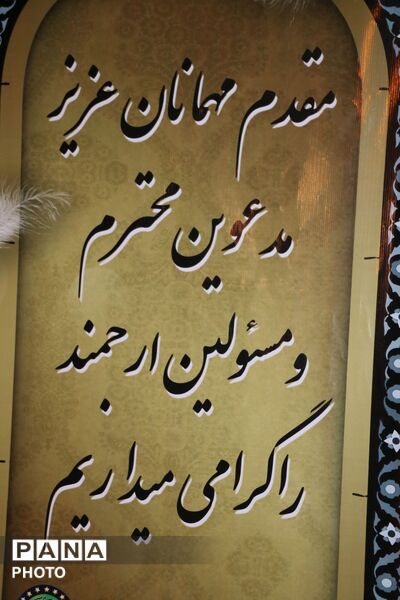 مقدم مهمانان عزیز
مدعوین محترم
ومسئولین ارجمند
راگرامی میداریم
PANA
PHOTO